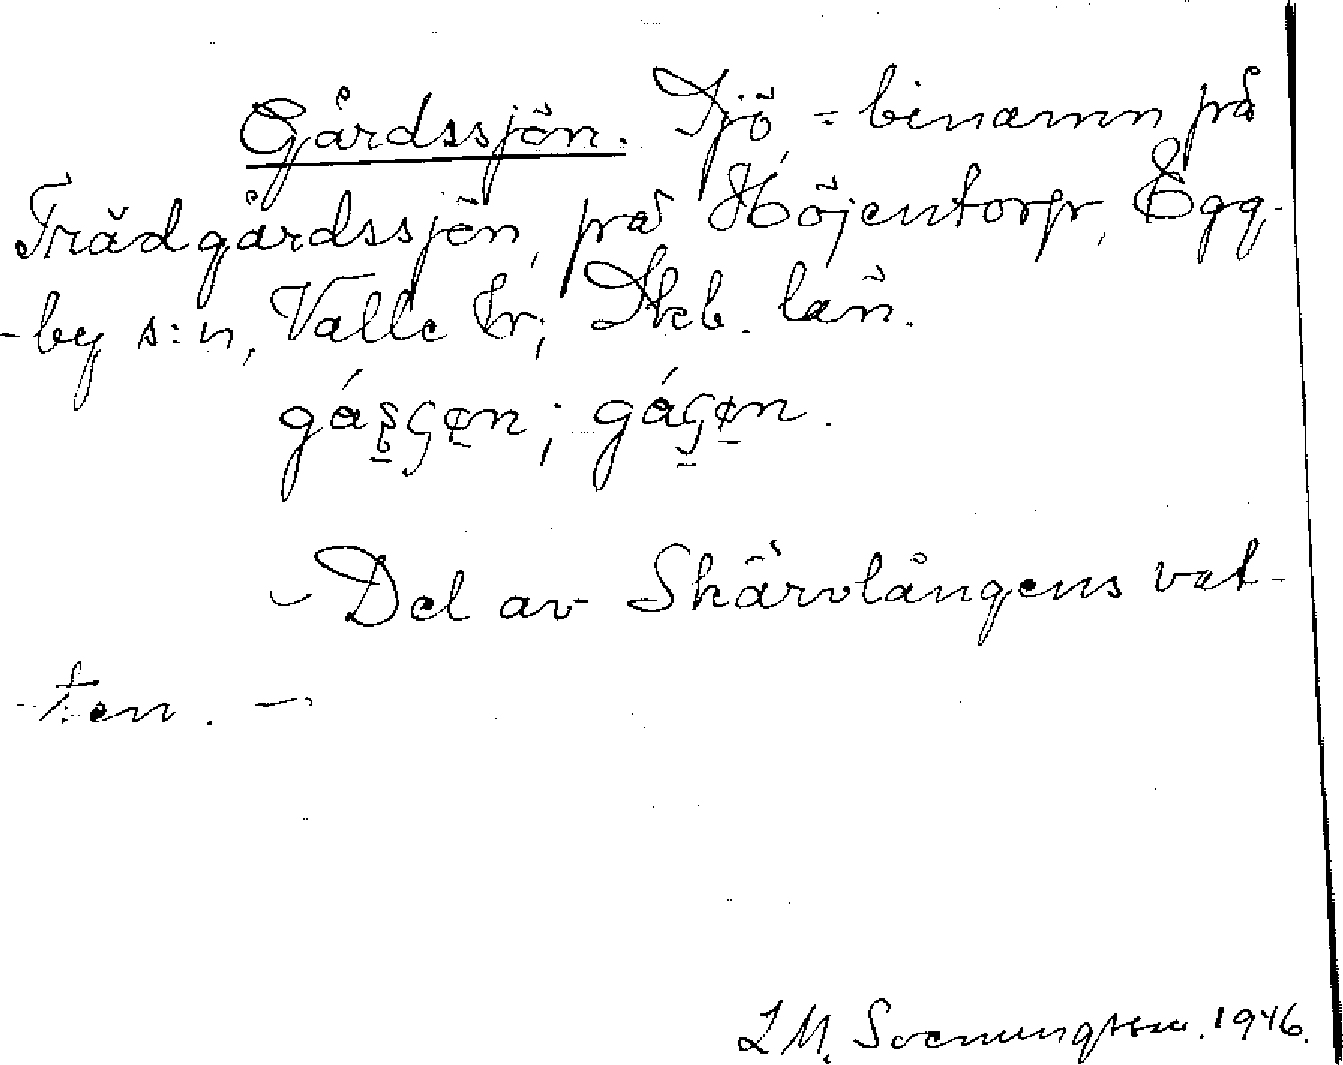 Gårdssjön. Sjö = binamn på
Trädgårdssjön, på Höjentorp, Egg-
-by s:n, Valle hr, Skb. län.
gá
- Del av Skärvlångens vat-
-ten. -
L M. Svenungsson. 1946.